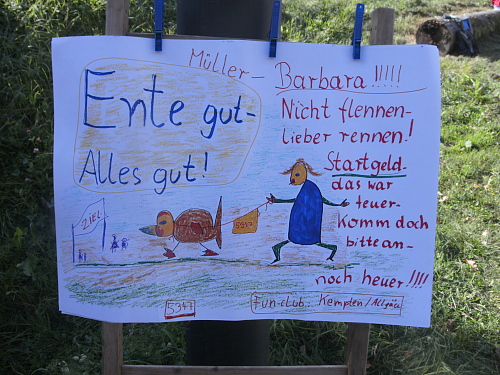 Müller-
Barbara !!!!!
Ente gut-
Alles gut!
Nicht flennen-
Lieber rennen!
Startgeld-
das war
teuer-
Komm doch
bitte an-
noch heuer!!!!
ZIEL
5347
5347
Fun-club: Kempten/Allgäu